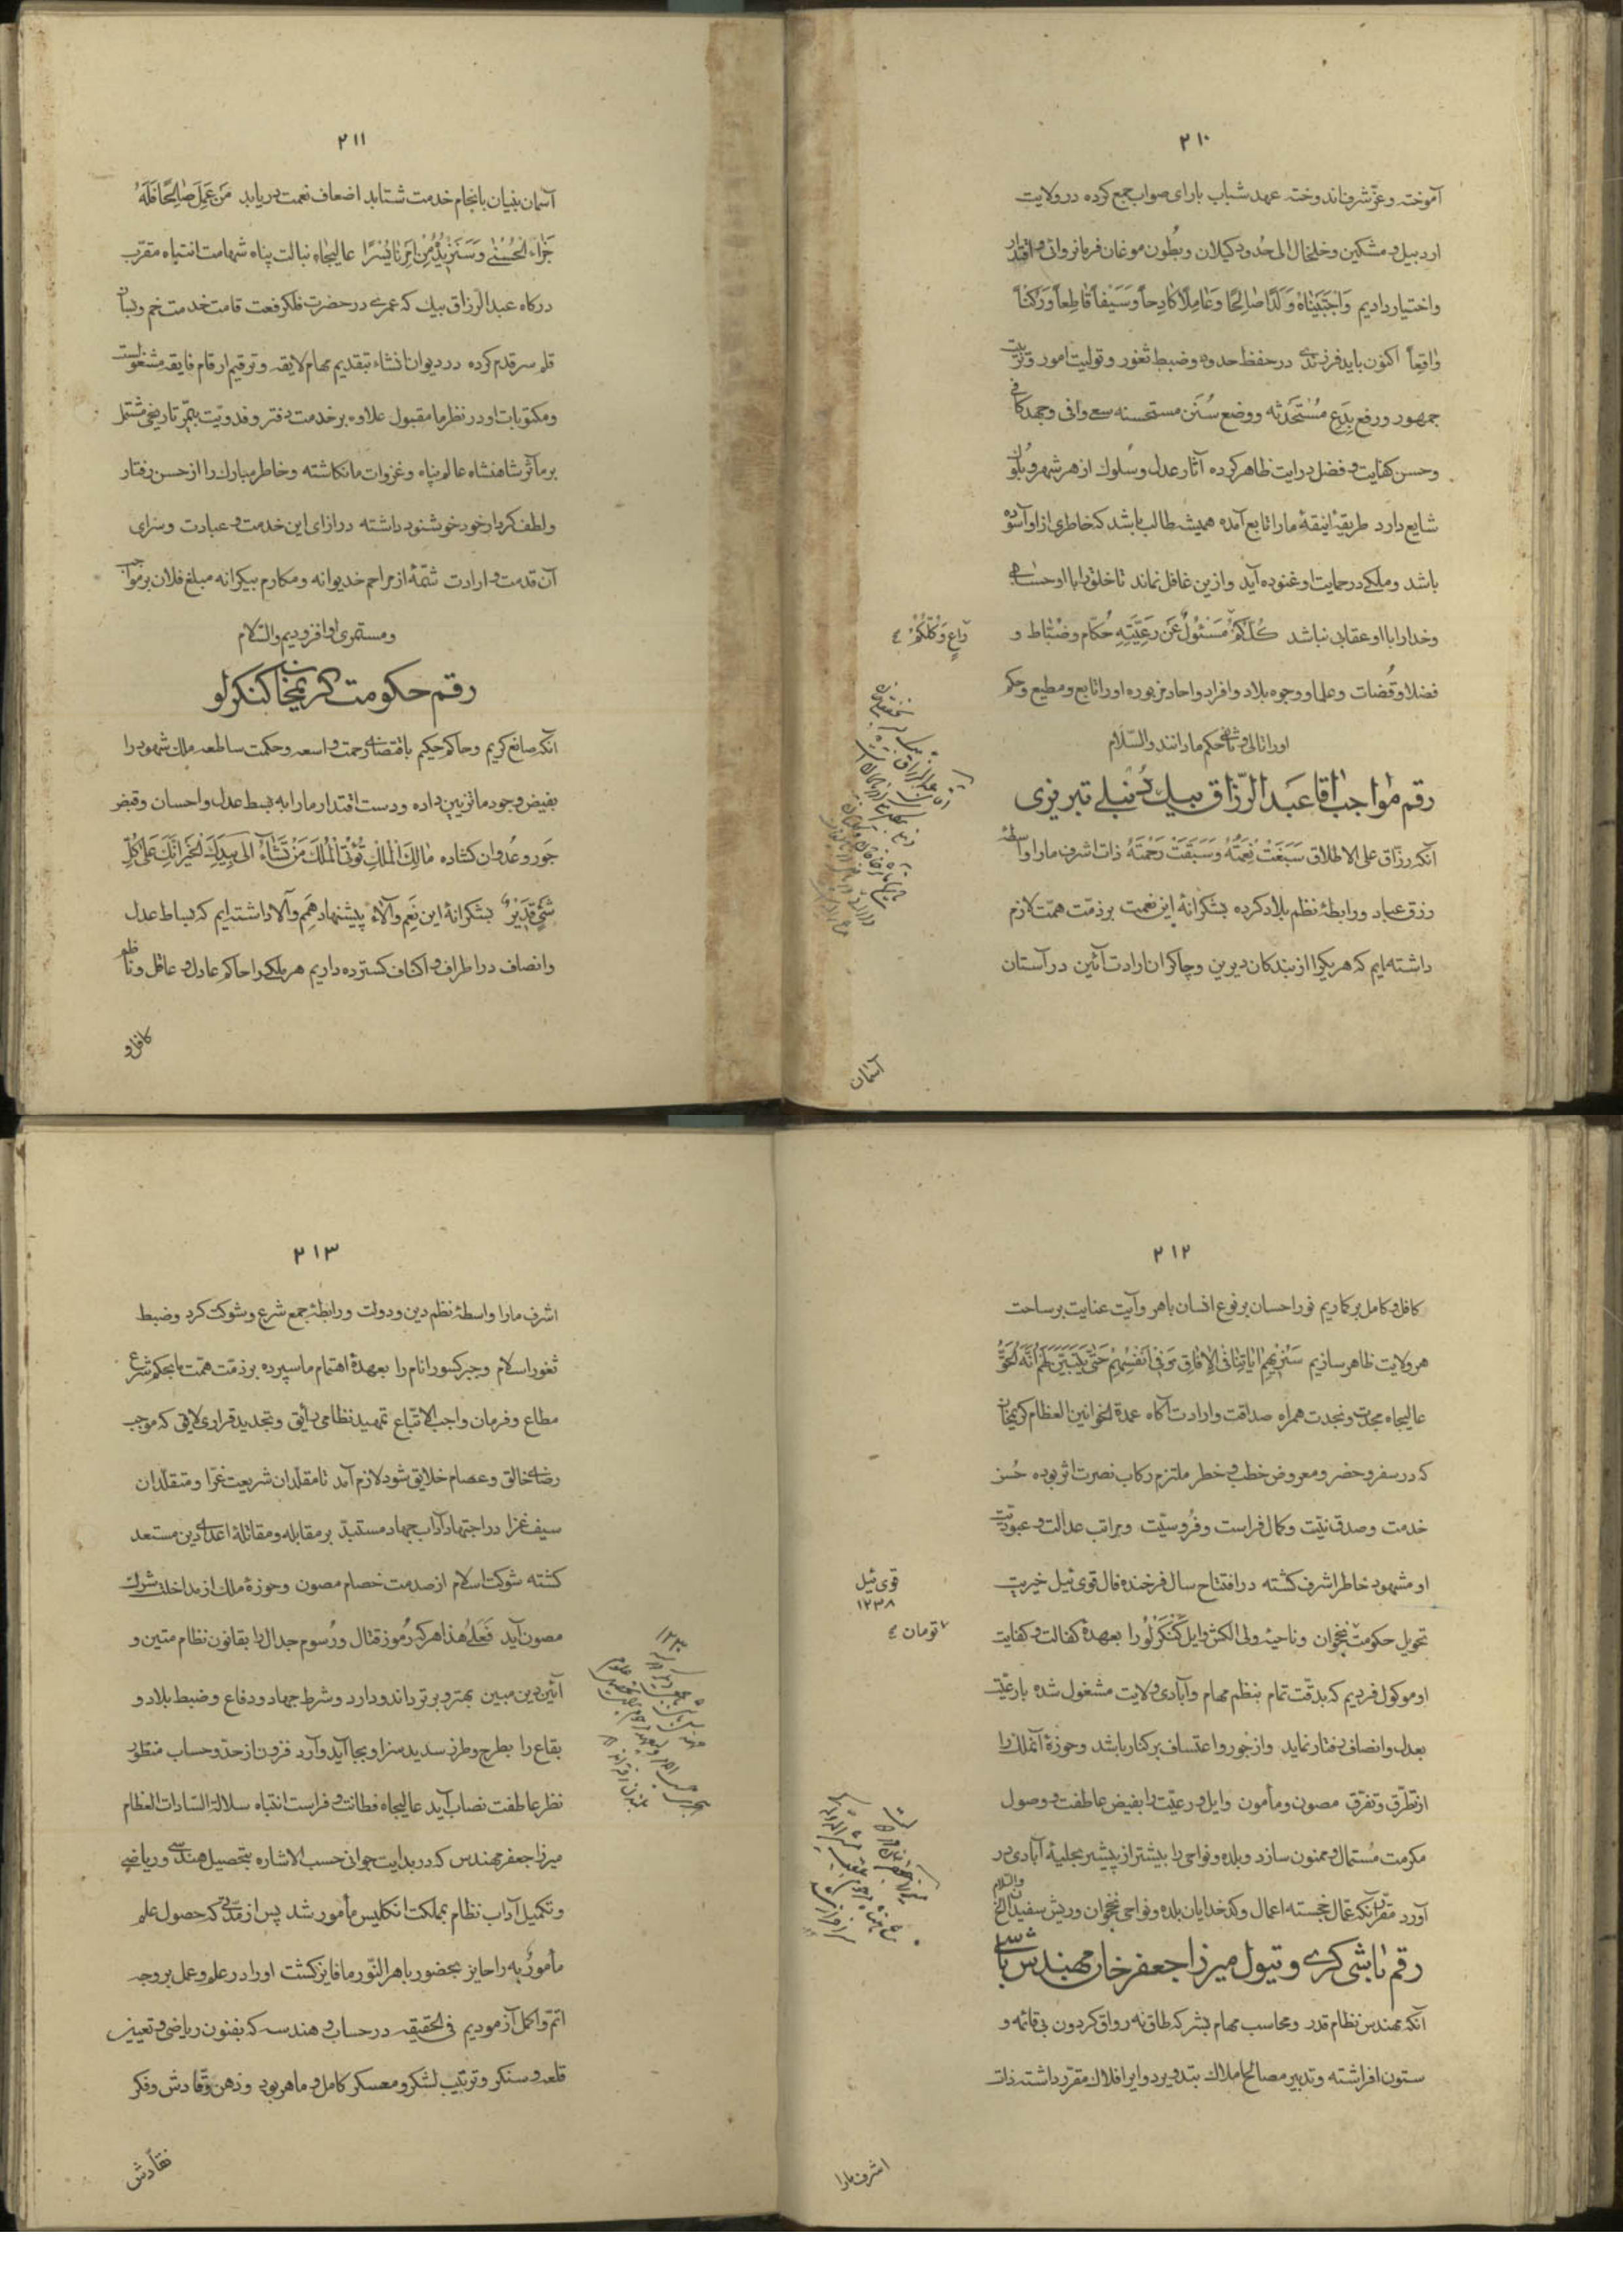 ۲۱۰
آموخته و عزّ شرف اندوخته عهد شباب با رای صواب جمع کرده در ولایت
اردبیل و مشکین و خلخال الی حدود کیلان و بطون موغان فرمانروائی و اقتدار
و اختیار دادیم وَاجْتَبَیْنَاهُ وَلَدًا صٰالِحًا وَعٰامِلًا کٰادِحاً وَسَیْفاً قٰاطِعاً وَرُکْناً
وٰاقِعاً اکنون باید فرزندی در حفظ حدود و ضبط ثغور و تولیت امور و تربیت
جمهور و رفع بِدَعِ مُسْتَحْدَثه و وضع سُنَن مستحسنه سعی وافی و جهد کافی
و حسن کفایت و فضل درایت ظاهر کرده آثار عدل و سلوک از هر شهر و بلوک
شایع دارد طریقهٔ انیقهٔ ما را تابع آمده همیشه طالب باشد که خاطری از او آسوده
باشد و ملکی در حمایت او غنوده آید و ازین غافل نماند تا خلق را با او حسابی
و خدا را با او عقابی نباشد کُلُّکُمْ مَسْئُولٌ عَنْ رَعِیَّتِهِ حُکّام و ضبّاط و
رٰاعٍ وَکُلُّکُمْ
فضلا و قُضات و علما و وجوه بلاد و افراد و احاد مزبوره او را تابع و مطیع و حکم
او را تالی و ثانی حکم ما دانند والسّلام
رقم مواجب آقا عبدالرّزاق بیک دنبلی تبریزی
آنکه رزّاق علی الاطلاق سَبَغَتْ نِعْمَتُهُ وَسَبَقَتْ رَحْمَتُهُ ذات اشرف ما را واسطهٔ
رزق عباد و رابطهٔ نظم بلاد کرده بشکرانهٔ این نعمت بر ذمّت همّت لازم
داشته‌ایم که هر یک را از بندکان دیرین و چاکران ارادت آئین در آستان
آسمان
۲۱۱
آسمان بنیان بانجام خدمت شتابد اضعاف نعمت دریابد مَنْ عَمِلَ صٰالِحًا فَلَهُ
جَزٰاءً الْحُسْنٰی وَسَنَزِیْدُ مِنْ اَمْرِنٰا یُسْرًا عالیجاه نبالت پناه شهامت انتباه مقرّب
درکاه عبدالرّزاق بیک که عمری در حضرت فلک رفعت قامت خدمت خم و بسان
قلم سر قدم کرده در دیوان انشاء بتقدیم مهام لایقه و ترقیم ارقام فایقه مشغولست
و مکتوبات او در نظر ما مقبول علاوه بر خدمت دفتر و فدویّت تاریخی مشتمل
بر مآثر شاهنشاه عالم پناه و غزوات ما نکاشته و خاطر مبارک را از حسن رفتار
و لطف کردار خود خوشنود داشته در ازای این خدمت و عبادت و سزای
آن قدمت و ارادت شمّهٔ از مراحم خدیوانه و مکارم بیکرانه مبلغ فلان بر مواجب
و مستمری او افزودیم والسّلام
رقم حکومت کریمخان کنکرلو
آنکه صانع کریم و حاکم حکیم باقتضای رحمت واسعه و حکمت ساطعه ملک شهود را
بفیض وجود ما تزیین داده و دست اقتدار ما را به بسط عدل و احسان و قبض
جور و عدوان کشاده مٰالِکَ الْمُلْکِ تُؤْتِی الْمُلْکَ مَنْ تَشٰاءُ الی بِیَدِکَ الْخَیْرُ اِنَّکَ عَلٰی کُلِّ
شَئٍ قَدِیْرٌ بشکرانهٔ این نِعَم و آلاء پیشنهاد هِمَم والا داشته‌ایم که بساط عدل
و انصاف در اطراف و اکناف کسترده داریم هر ملکی را حاکم عادل و عاقل و ناظم
کافل و
۲۱۲
کافل و کامل برکماریم نور احسان بر نوع انسان باهر و آیت عنایت بر ساحت
هر ولایت ظاهر سازیم سَنُرِیْهِمْ اٰیٰاتِنٰا فِی الْاٰفٰاقِ وَ فِی اَنْفُسِهِمْ حَتّٰی یَتَبَیَّنَ لَهُمْ اَنَّهُ الْحَقُّ
عالیجاه مجدت و نجدت همراه صداقت و ارادت آکاه عمدة الخوانین العظام کریمخان
که در سفر و حضر و معروض خطب و خطر ملتزم رکاب نصرت اثر بوده حُسن
خدمت و صدق نیّت و کمال فراست و فُروسیّت و مراتب عدالت و عبودیّت
او مشهود خاطر اشرف کشته در افتتاح سال فرخنده فال قوی ئیل خیریت
قوی ئیل
۱۲۳۸
تحویل حکومت نخجوان و ناحیهٔ ولی الکش و ایل کَنْکَرلُو را بعهدهٔ کفالت و کفایت
تومان
او موکول فردیم که بدقّت تمام بنظم مهام و آبادی ولایت مشغول شده با رعیّت
بعدل و انصاف رفتار نماید و از جور و اعتساف برکنار باشد و حوزهٔ آنملک را
از تطرّق و تفرّق مصون و مأمون و ایل و رعیّت را بفیض عاطفت و وصول
مکرمت مُستمال و ممنون سازد و بلده و نواحی را بیشتر از پیشتر بحلیهٔ آبادی در
آورد مقرّر آنکه عمّال خجسته اعمال و کدخدایان بلده و نواحی نخجوان و ریش سفیدان الخ والسّلام
رقم باشی کری و تیول میرزا جعفر خان مهندس باشی
آنکه مهندس نظام قدر و محاسب مهام بشر که طاق نه رواق کردون بی قائمه و
ستون افراشته و تدبیر مصالح املاک بتدویر دوایر افلاک مقرّر داشته ذات
اشرف ما را
۲۱۳
اشرف ما را واسطهٔ نظم دین و دولت و رابطهٔ جمع شرع و شوکت کرد و ضبط
ثغور اسلام و جبر کسور انام را بعهدهٔ اهتمام ما سپرده بر ذمّت همّت ما بحکم شرع
مطاع و فرمان واجب الاتّباع تمهید نظامی رائق و تجدید قراری لایق که موجب
رضای خالق و عصام خلایق شود لازم آمد تا مقلّدان شریعت غرّا و متقلّدان
سیف غزا در اجتهاد آداب جهاد مستبدّ بر مقابله و مقاتلهٔ اعدای دین مستعد
کشته شوکت اسلام از صدمت خصام مصون و حوزهٔ ملک از مداخلت شرک
مصون آید فَعَلٰی هٰذا هر که رُموز قتال و رُسوم جدال را بقانون نظام متین و
آئین دین مبین بهتر و برتر داند و دارد و شرط جهاد و دفاع و ضبط بلاد و
بقاع را بطرح و طرز سدید سزاوار بجا آید و آرد فزون از حدّ و حساب منظور
نظر عاطفت نصاب آید عالیجاه فطانت و فراست انتباه سلالة السّادات العظام
میرزا جعفر مهندس که در بدایت جوانی حسب الاشاره بتحصیل هندسی و ریاضی
و تکمیل آداب نظام بمملکت انکلیس مأمور شد پس از مدّتی که حصول علم
مأموٌر به را حایز بحضور باهر النّور ما فایز کشت او را در علم و عمل بر وجه
اتمّ و اکمل آزمودیم فی الحقیقه در حساب و هندسه که بفنون ریاضی و تعیین
قلعه و سنکر و ترتیب لشکر و معسکر کامل و ماهر بود و ذهن وقّادش و فکر
نقّادش
۱۲۳۰